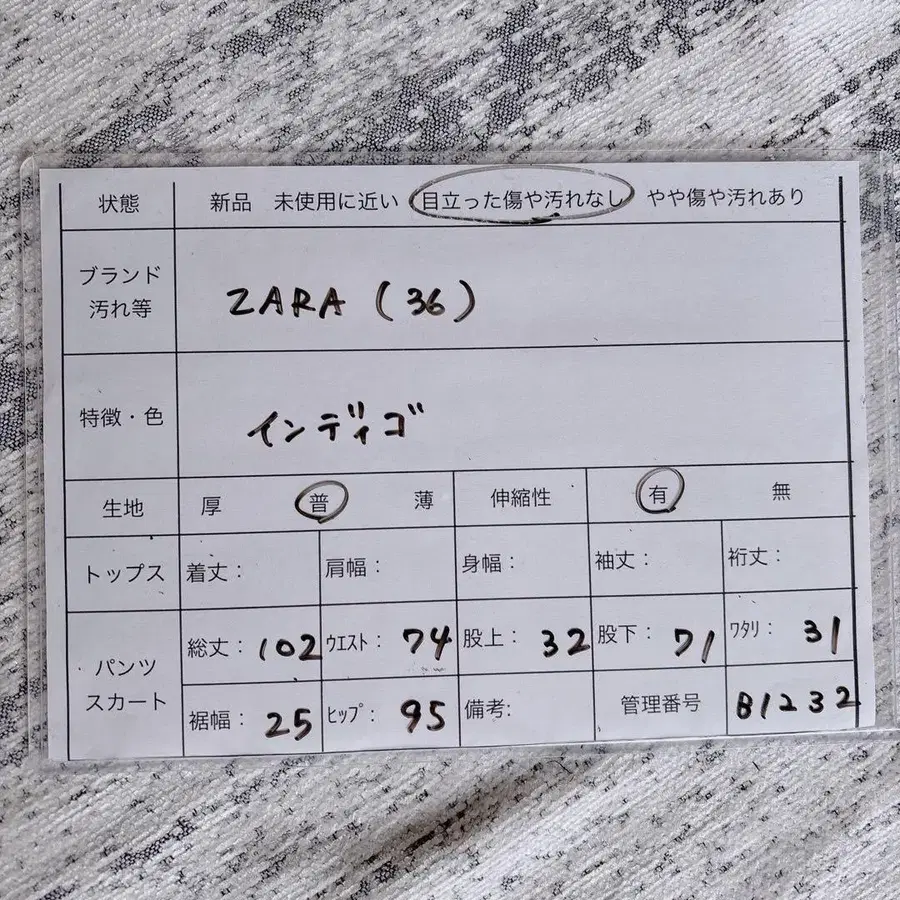 状態 新品 未使用に近い 目立った傷や汚れなし やや傷や汚れあり
ブランド
汚れ等
ZARA (36)
特徴・色 インディゴ
生地 厚 普 薄 伸縮性 有 無
トップス 着丈: 肩幅: 身幅: 袖丈: 裄丈:
パンツ
スカート
総丈: 102 ウエスト: 74 股上: 32 股下: 71 ワタリ: 31
裾幅: 25 ヒップ: 95 備考: 管理番号 B1232